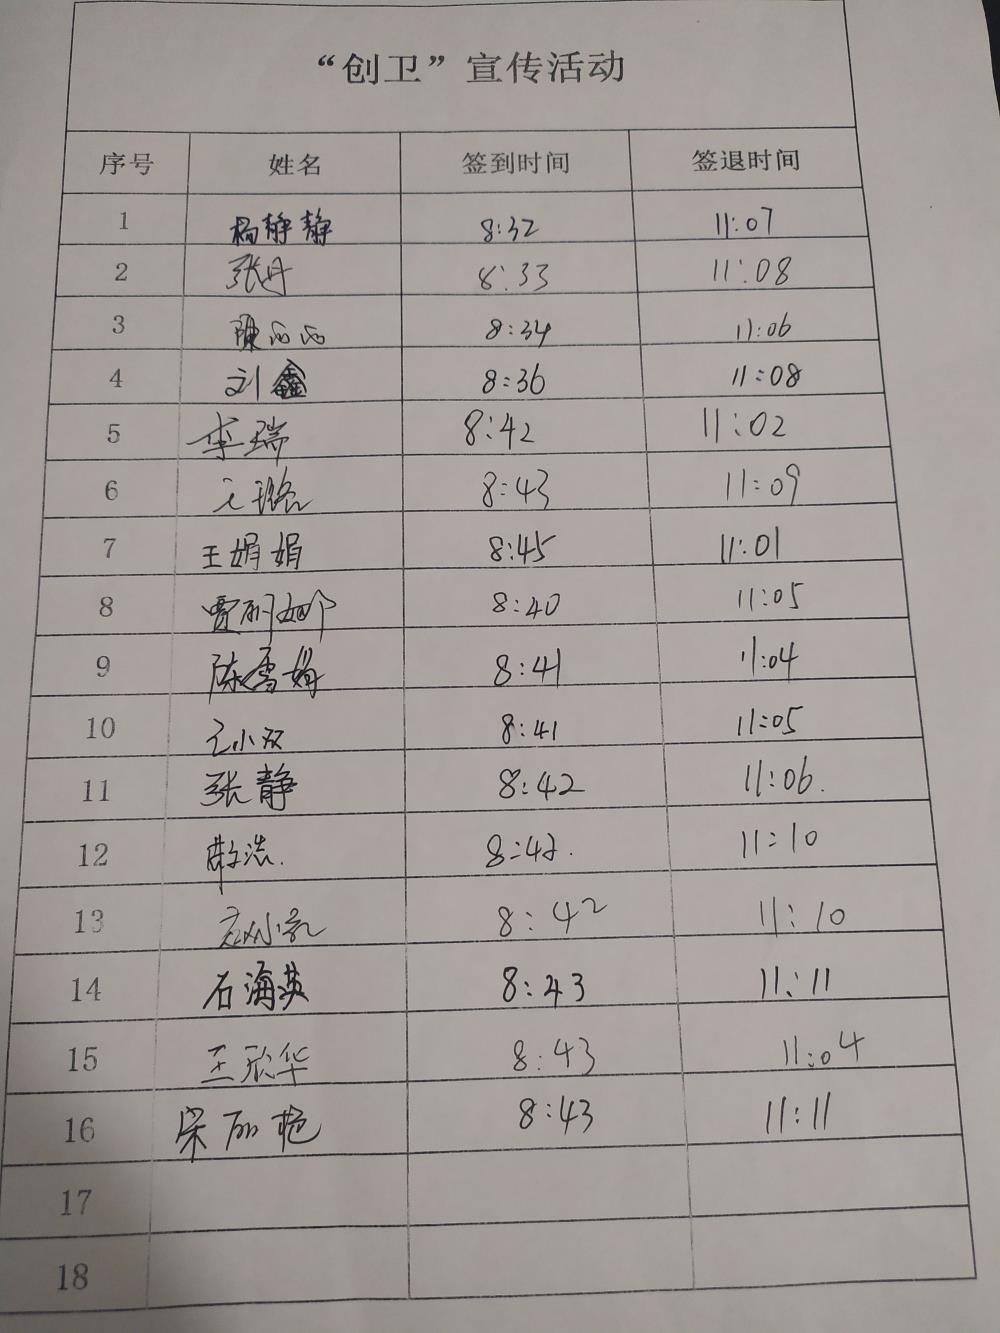 “创卫”宣传活动
序号 姓名 签到时间 签退时间
1 杨静静 8:32 11:07
2 张丹 8:33 11:08
3 陳 8:34 11:06
4 刘鑫 8:36 11:08
5 李瑞 8:42 11:02
6 王璐 8:43 11:09
7 王娟娟 8:45 11:01
8 贾丽娜 8:40 11:05
9 陈雪娟 8:41 11:04
10 王小双 8:41 11:05
11 张静 8:42 11:06.
12 8:42. 11:10
13 8:42 11:10
14 石海英 8:43 11:11
15 王欣华 8:43 11:04
16 宋丽艳 8:43 11:11
17
18